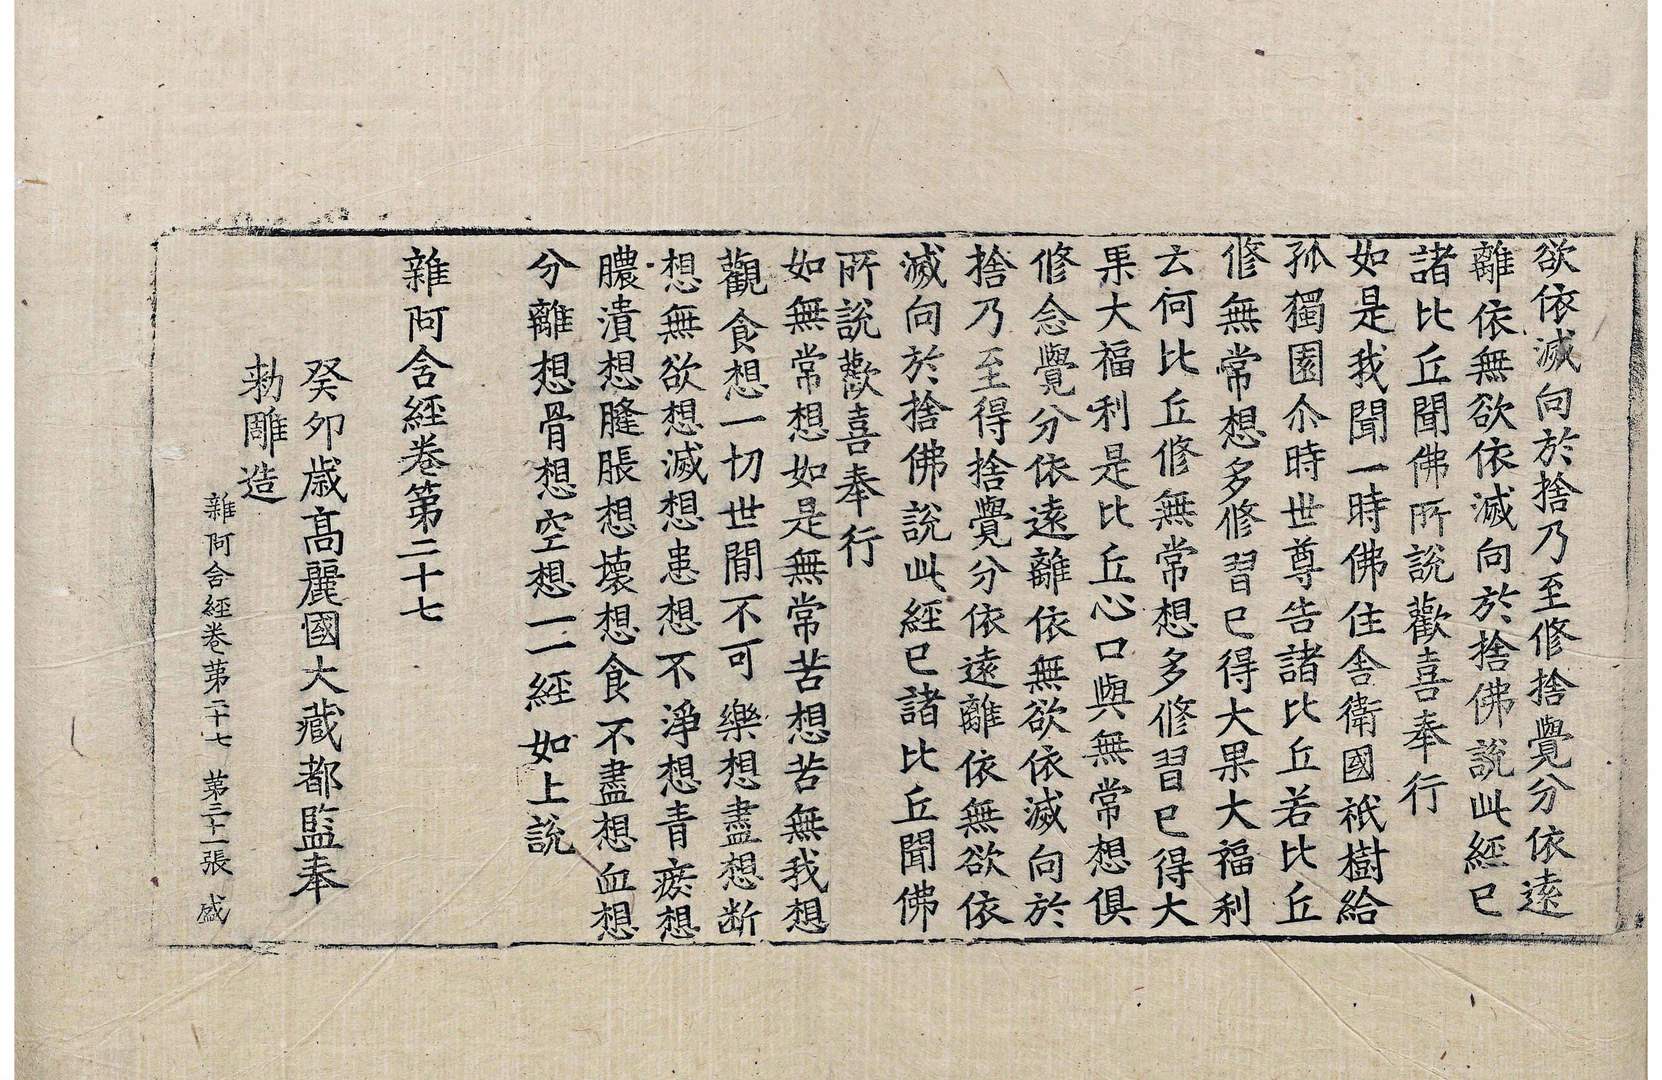 欲依滅向於捨乃至修捨覺分依遠
離依無欲依滅向於捨佛說此經已
諸比丘聞佛所說歡喜奉行
如是我聞一時佛住舍衛國祇樹給
孤獨園尒時世尊告諸比丘若比丘
修無常想多修習已得大果大福利
云何比丘修無常想多修習已得大
果大福利是比丘心口與無常想俱
修念覺分依遠離依無欲依滅向於
捨乃至得捨覺分依遠離依無欲依
滅向於捨佛說此經已諸比丘聞佛
所說歡喜奉行
如無常想如是無常苦想苦無我想
觀食想一切世間不可樂想盡想斷
想無欲想滅想患想不淨想青瘀想
膿潰想膖脹想壞想食不盡想血想
分離想骨想空想一一經如上說
雜阿含經卷第二十七
癸卯歲高麗國大藏都監奉
勅雕造
雜阿含經卷第二十七 第三十一張 盛